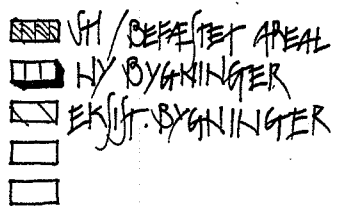 / BEFÆSTET AREAL
NY BYGNINGER
EKSIST. BYGNINGER